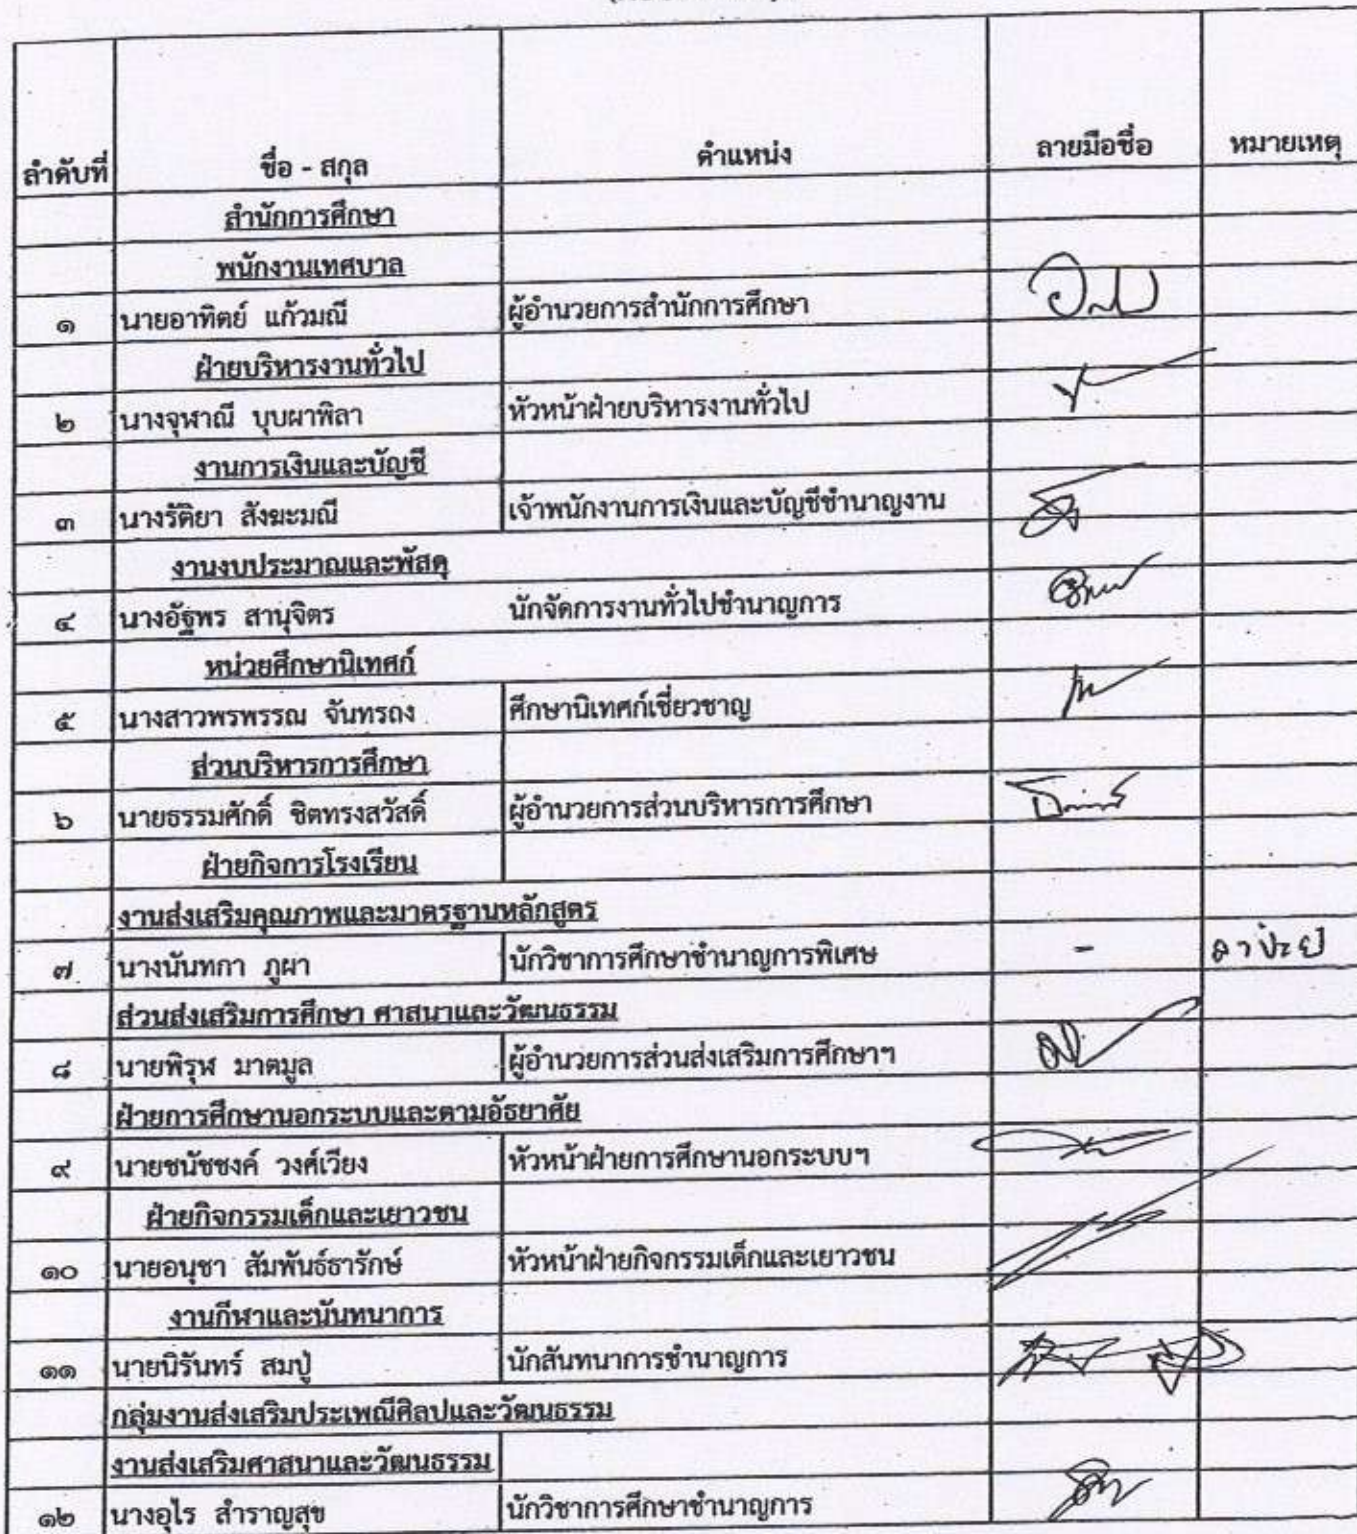 ลำดับที่ ชื่อ - สกุล ตำแหน่ง ลายมือชื่อ หมายเหตุ
สำนักการศึกษา
พนักงานเทศบาล
๑ นายอาทิตย์ แก้วมณี ผู้อำนวยการสำนักการศึกษา
ฝ่ายบริหารงานทั่วไป
๒ นางจุฬาณี บุบผาพิลา หัวหน้าฝ่ายบริหารงานทั่วไป
งานการเงินและบัญชี
๓ นางรัติยา สังฆะมณี เจ้าพนักงานการเงินและบัญชีชำนาญงาน
งานงบประมาณและพัสดุ
๔ นางอัฐพร สานุจิตร นักจัดการงานทั่วไปชำนาญการ
หน่วยศึกษานิเทศก์
๕ นางสาวพรพรรณ จันทรถง ศึกษานิเทศก์เชี่ยวชาญ
ส่วนบริหารการศึกษา
๖ นายธรรมศักดิ์ ชิตทรงสวัสดิ์ ผู้อำนวยการส่วนบริหารการศึกษา
ฝ่ายกิจการโรงเรียน
งานส่งเสริมคุณภาพและมาตรฐานหลักสูตร
๗ นางนันทกา ภูผา นักวิชาการศึกษาชำนาญการพิเศษ -
ส่วนส่งเสริมการศึกษา ศาสนาและวัฒนธรรม
๘ นายพิรุฬ มาตมูล ผู้อำนวยการส่วนส่งเสริมการศึกษาฯ
ฝ่ายการศึกษานอกระบบและตามอัธยาศัย
๙ นายชนัชชงค์ วงศ์เวียง หัวหน้าฝ่ายการศึกษานอกระบบฯ
ฝ่ายกิจกรรมเด็กและเยาวชน
๑๐ นายอนุชา สัมพันธ์ธารักษ์ หัวหน้าฝ่ายกิจกรรมเด็กและเยาวชน
งานกีฬาและนันทนาการ
๑๑ นายนิรันทร์ สมปู่ นักสันทนาการชำนาญการ
กลุ่มงานส่งเสริมประเพณีศิลปและวัฒนธรรม
งานส่งเสริมศาสนาและวัฒนธรรม
๑๒ นางอุไร สำราญสุข นักวิชาการศึกษาชำนาญการ